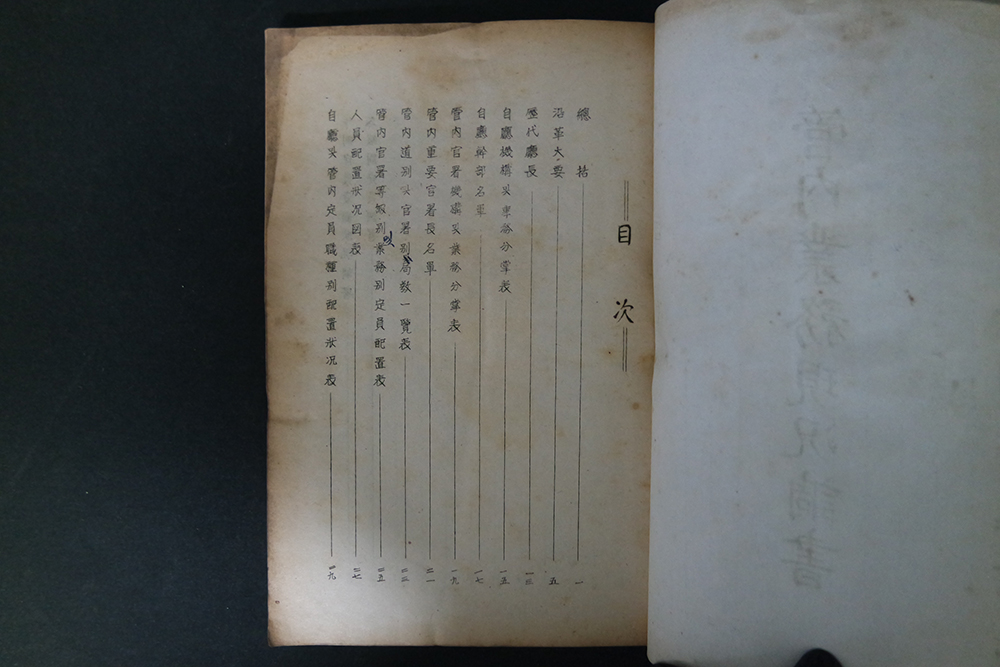 目次
總括 一
沿革大要 五
歷代廳長 一三
自廳機構及事務分掌表 一五
自廳幹部名單 一七
管內官署機構及業務分掌表 一九
管內重要官署長名單 二一
管內道別及官署別局數一覽表 二三
管內官署等級別及業務別定員配置表 二五
人員配置狀況圖表 二七
自廳及管內定員職種別配置狀況表 四九
管內業務現況調書